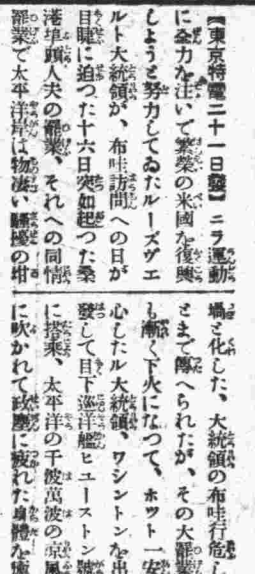 【東京特電二十一日發】ニラ運動
に全力を注いで繁榮の米國を復興
しようと努力してゐたルーズヴエ
ルト大統領が、布哇訪問への日が
目睫に迫つた十六日突如起つた桑
港埠頭人夫の罷業、それへの同情
罷業で太平洋岸は物凄い騷擾の坩
堝と化した、大統領の布哇行危し
とまで傳へられたが、その大罷業
も漸く下火になつて、ホツト一安
心したル大統領、ワシントンを出
發して目下巡洋艦ヒユーストン號
に搭乘、太平洋の千波萬波の凉風
に吹かれて政塵に疲れた身體を